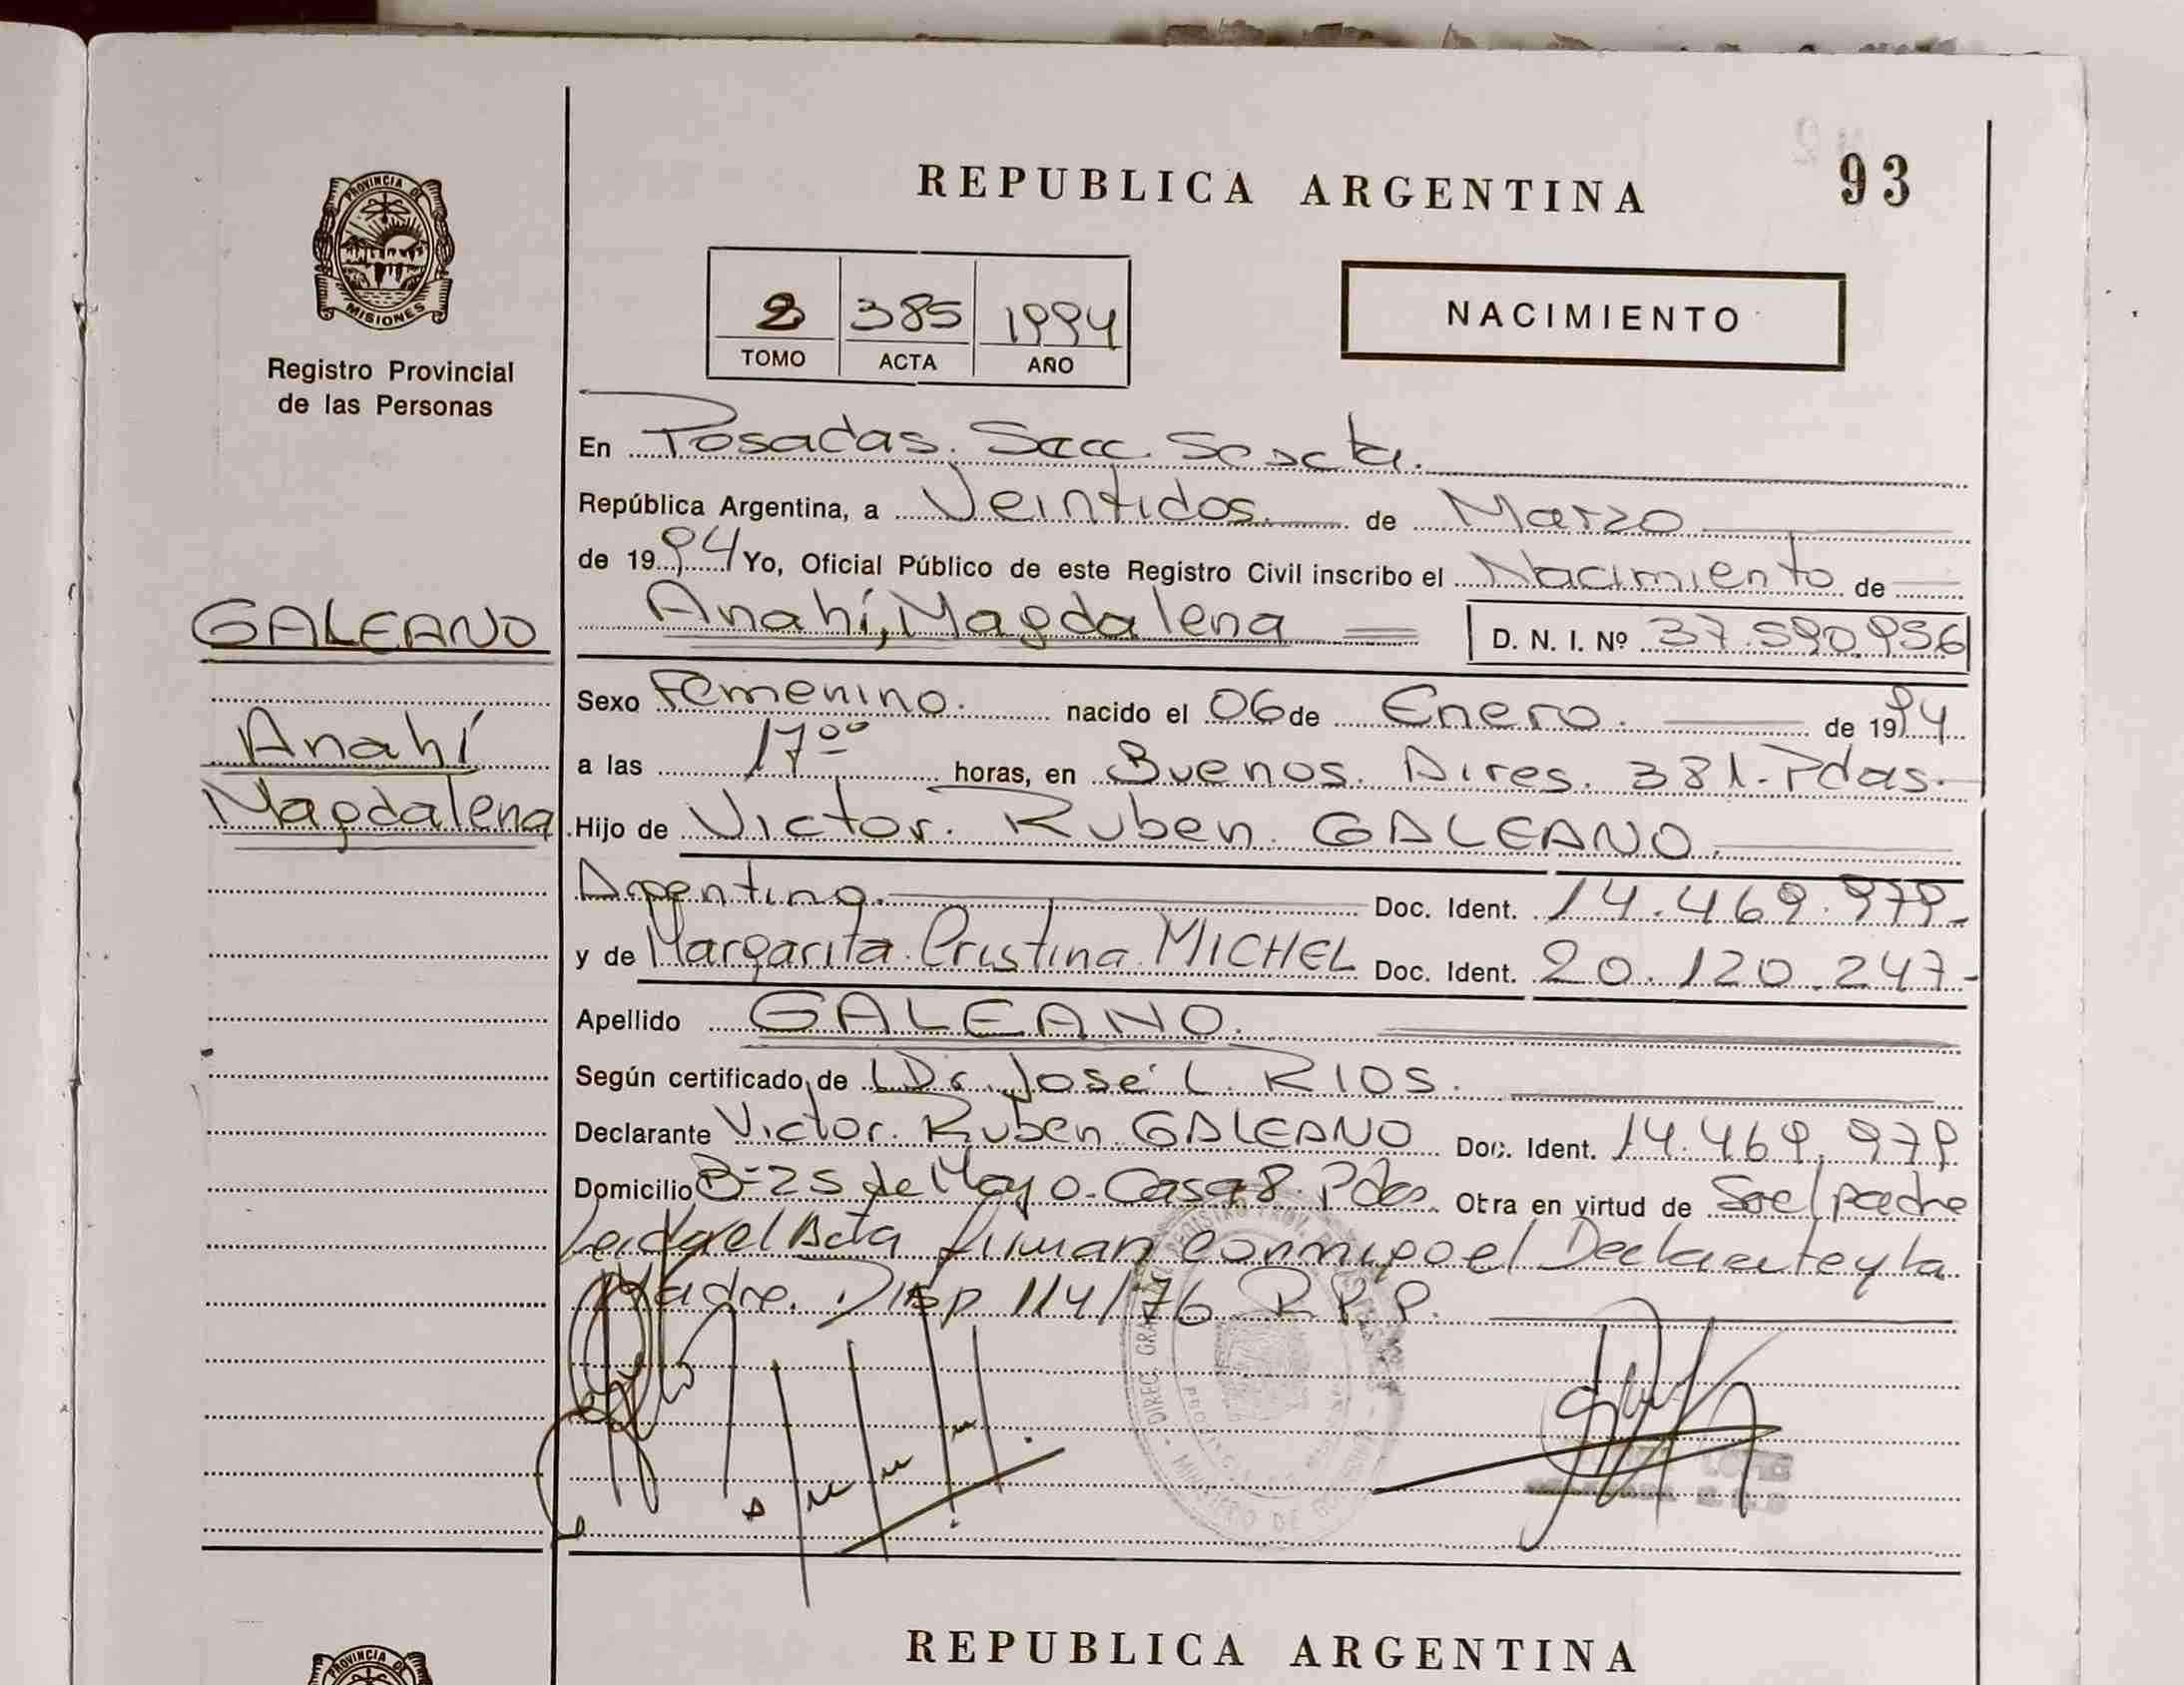 REPUBLICA ARGENTINA
93
PROVINCIA DE
MISIONES
Registro Provincial
de las Personas
2 385 1994
TOMO ACTA AÑO
NACIMIENTO
En Posadas. Secc. Sexta.
República Argentina, a Veintidos. de Marzo
de 1994 Yo, Oficial Público de este Registro Civil inscribo el Nacimiento de
GALEANO
Anahí
Magdalena
Anahí, Magdalena D. N. I. Nº 37.590.956
Sexo Femenino. nacido el 06 de Enero. de 1994
a las 17 00 horas, en Buenos. Aires. 381.Pdas.
Hijo de Victor. Ruben. GALEANO.
Argentino. Doc. Ident. 14.469.979-
y de Margarita Cristina MICHEL Doc. Ident. 20.120.247-
Apellido GALEANO.
Según certificado de Dr. José L. RIOS.
Declarante Victor. Ruben GALEANO Doc. Ident. 14.469.979
Domicilio B=25 de Mayo. Casa 8. Pdas. Obra en virtud de Ser el padre
Leida el Acta firman conmigo el Declarante y la
Madre. Disp 114/76 R.P.P.
REPUBLICA ARGENTINA
PROVINCIA DE